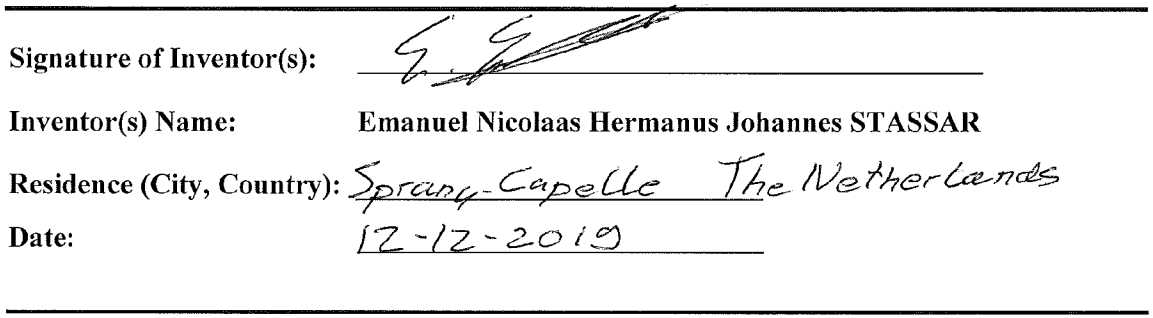 Signature of Inventor(s):
Inventor(s) Name: Emanuel Nicolaas Hermanus Johannes STASSAR
Residence (City, Country): Sprang-Capelle The Netherlands
Date: 12-12-2019